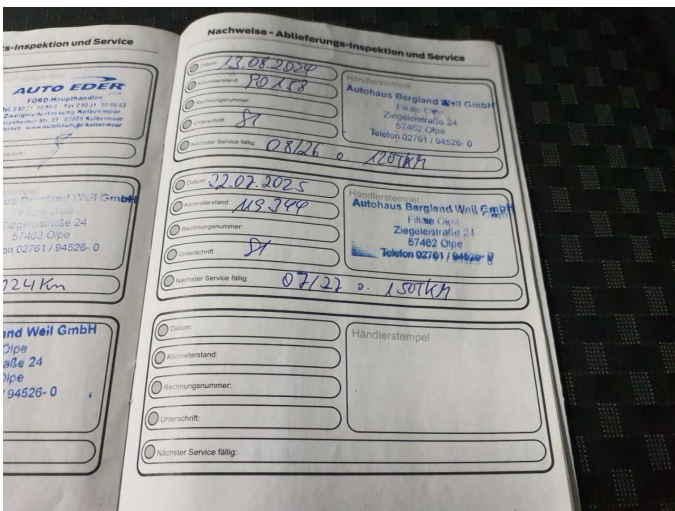 s-Inspektion und Service
AUTO EDER
FORD-Haupthändler
Zweigniederlassung Kolbermoor
Filiale Olpe
Ziegeleistraße 24
57462 Olpe
on 02761 / 94526- 0
224Km
and Weil GmbH
Olpe
aße 24
Olpe
/ 94526- 0
Nachweise - Ablieferungs-Inspektion und Service
Datum: 13.08.2024
Kilometerstand:
Rechnungsnummer:
Unterschrift:
Nächster Service fällig: 08/26 o. 120TKM
Händlerstempel
Autohaus Bergland Weil GmbH
Filiale Olpe
Ziegeleistraße 24
57462 Olpe
Telefon 02761 / 94526- 0
Datum: 22.07.2025
Kilometerstand: 119344
Rechnungsnummer:
Unterschrift:
Nächster Service fällig: 07/27 o. 150TKM
Händlerstempel
Autohaus Bergland Weil GmbH
Filiale Olpe
Ziegeleistraße 24
57462 Olpe
Telefon 02761 / 94526- 0
Datum:
Kilometerstand:
Rechnungsnummer:
Unterschrift:
Nächster Service fällig:
Händlerstempel